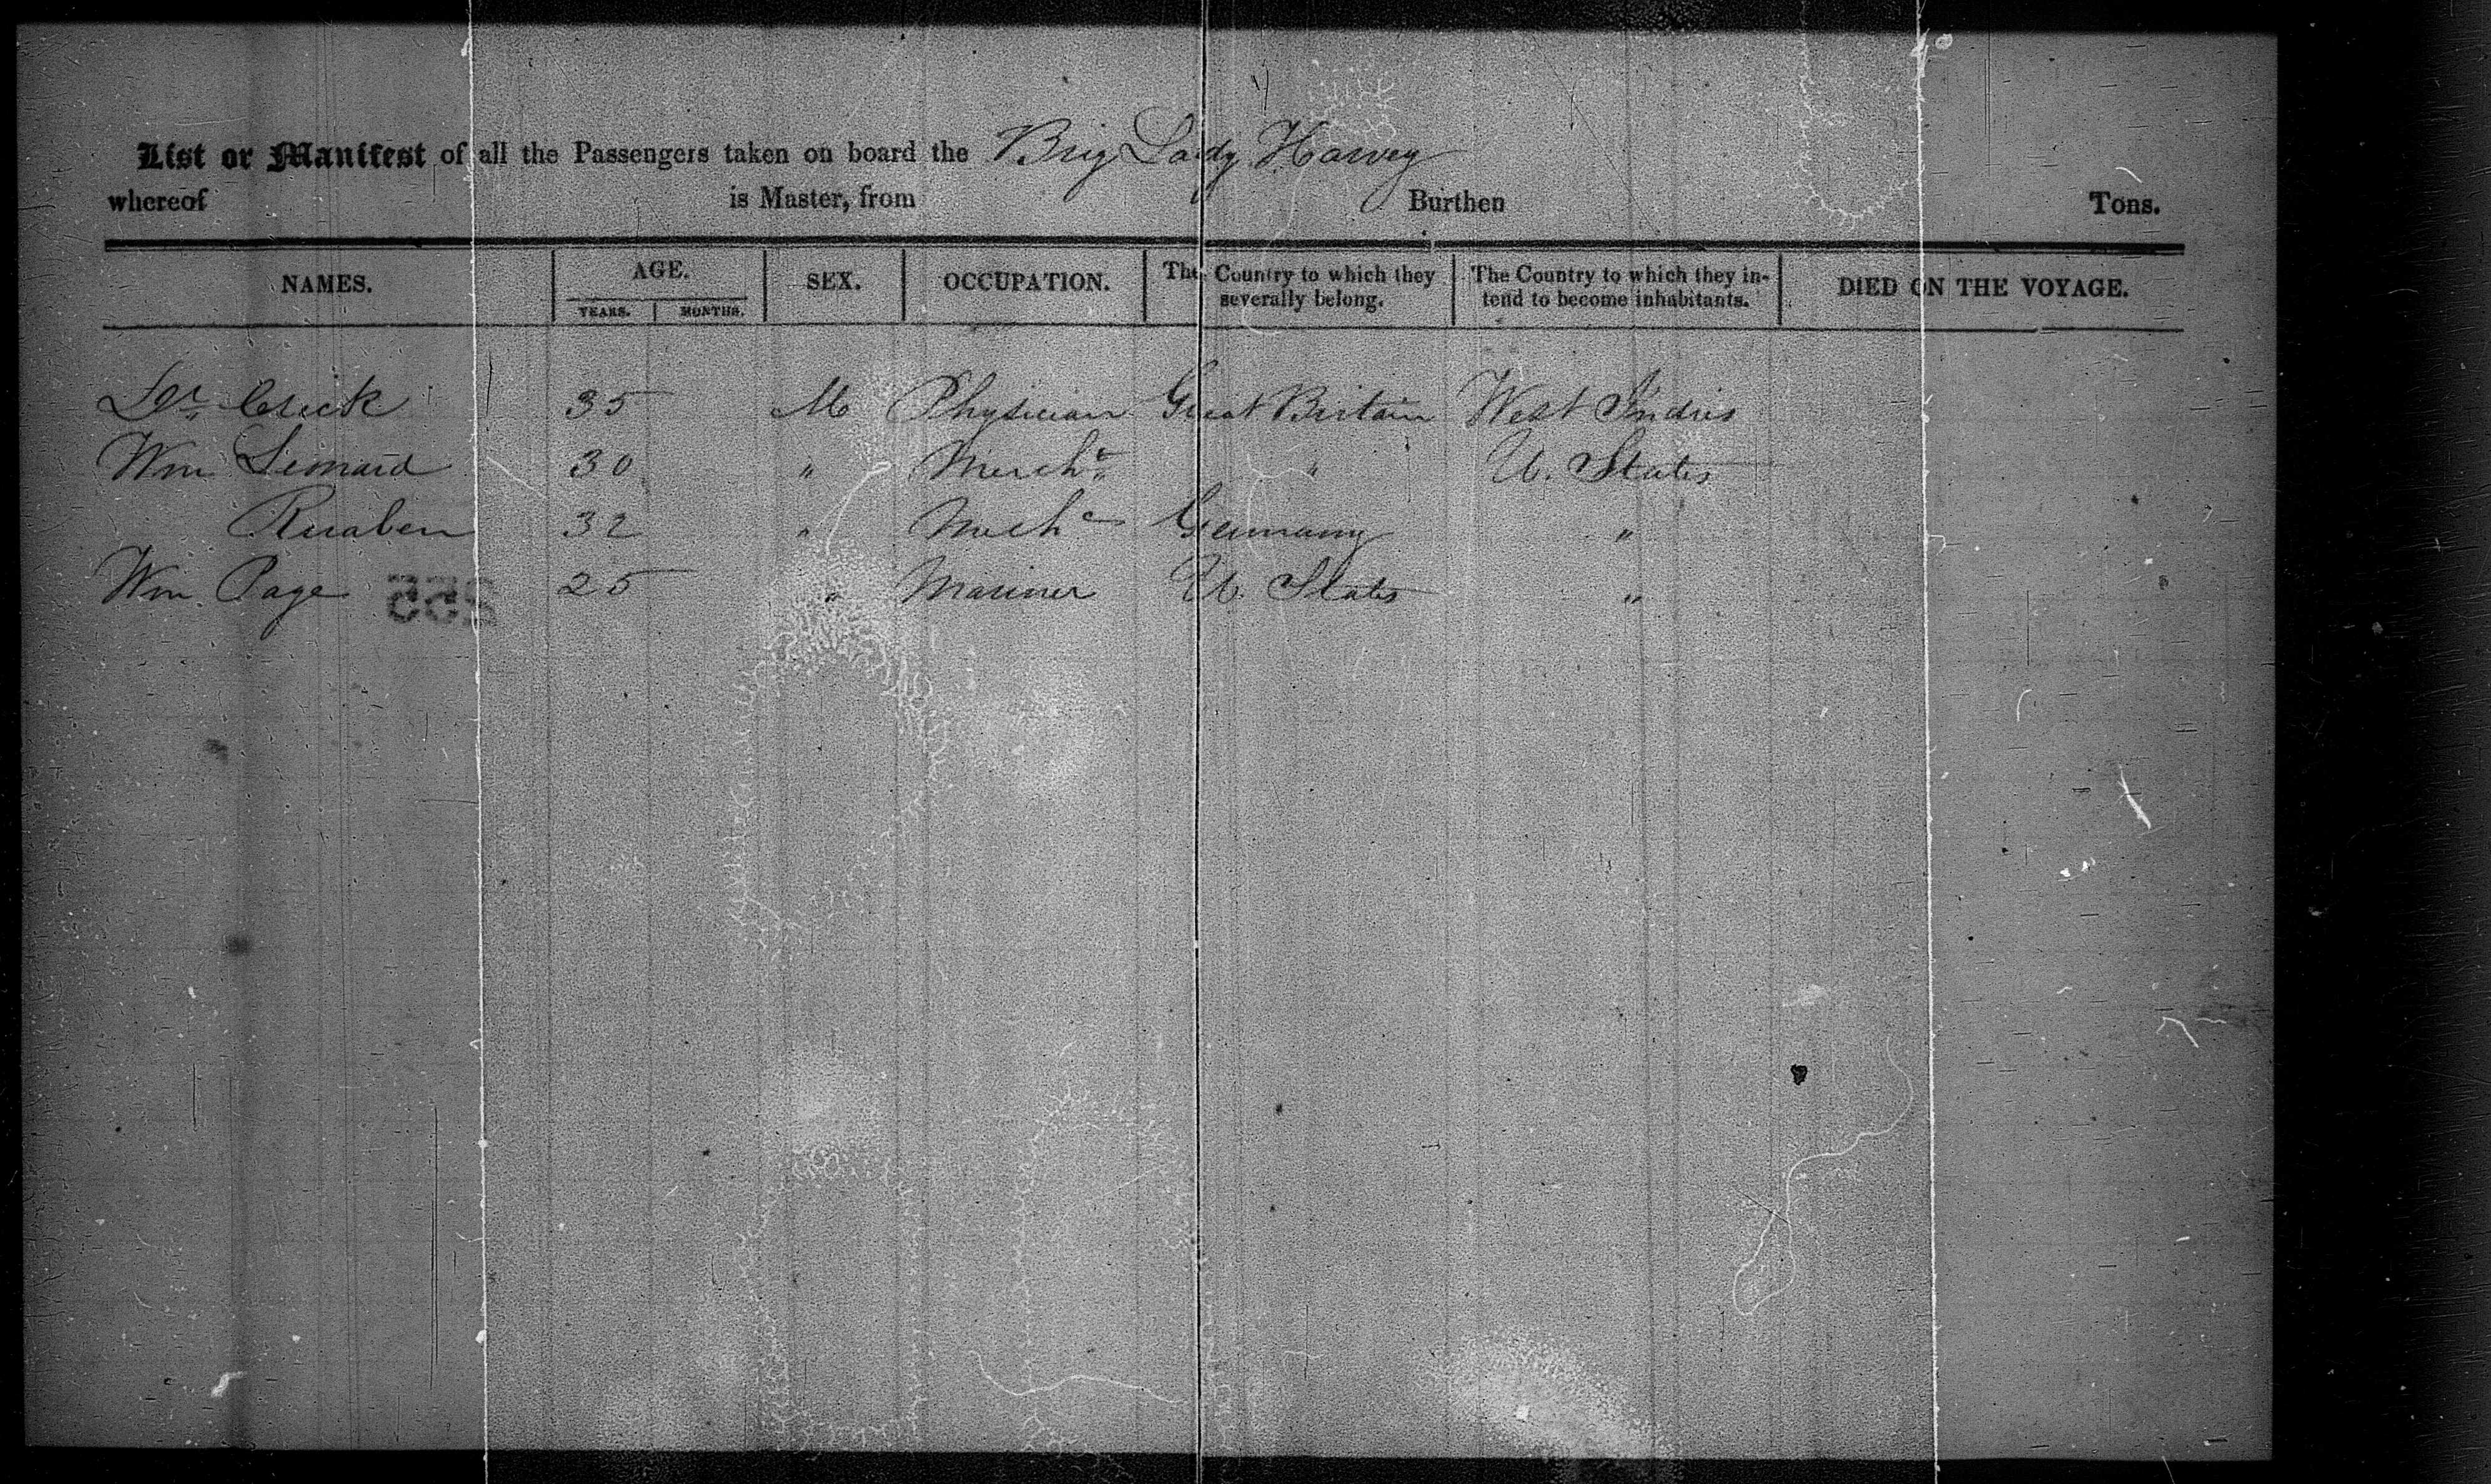 List or Manifest of all the Passengers taken on board the Brig Lady Harvey
whereof is Master, from Burthen Tons.
NAMES. AGE. SEX. OCCUPATION. The Country to which they severally belong. The Country to which they intend to become inhabitants. DIED ON THE VOYAGE.
YEARS. MONTHS.
Dr. Crick 35 M Physician Great Britain West Indies
Wm 30 " Mercht. " U. States
32 " Mech Germany "
Wm Page 25 " Mariner U. States "